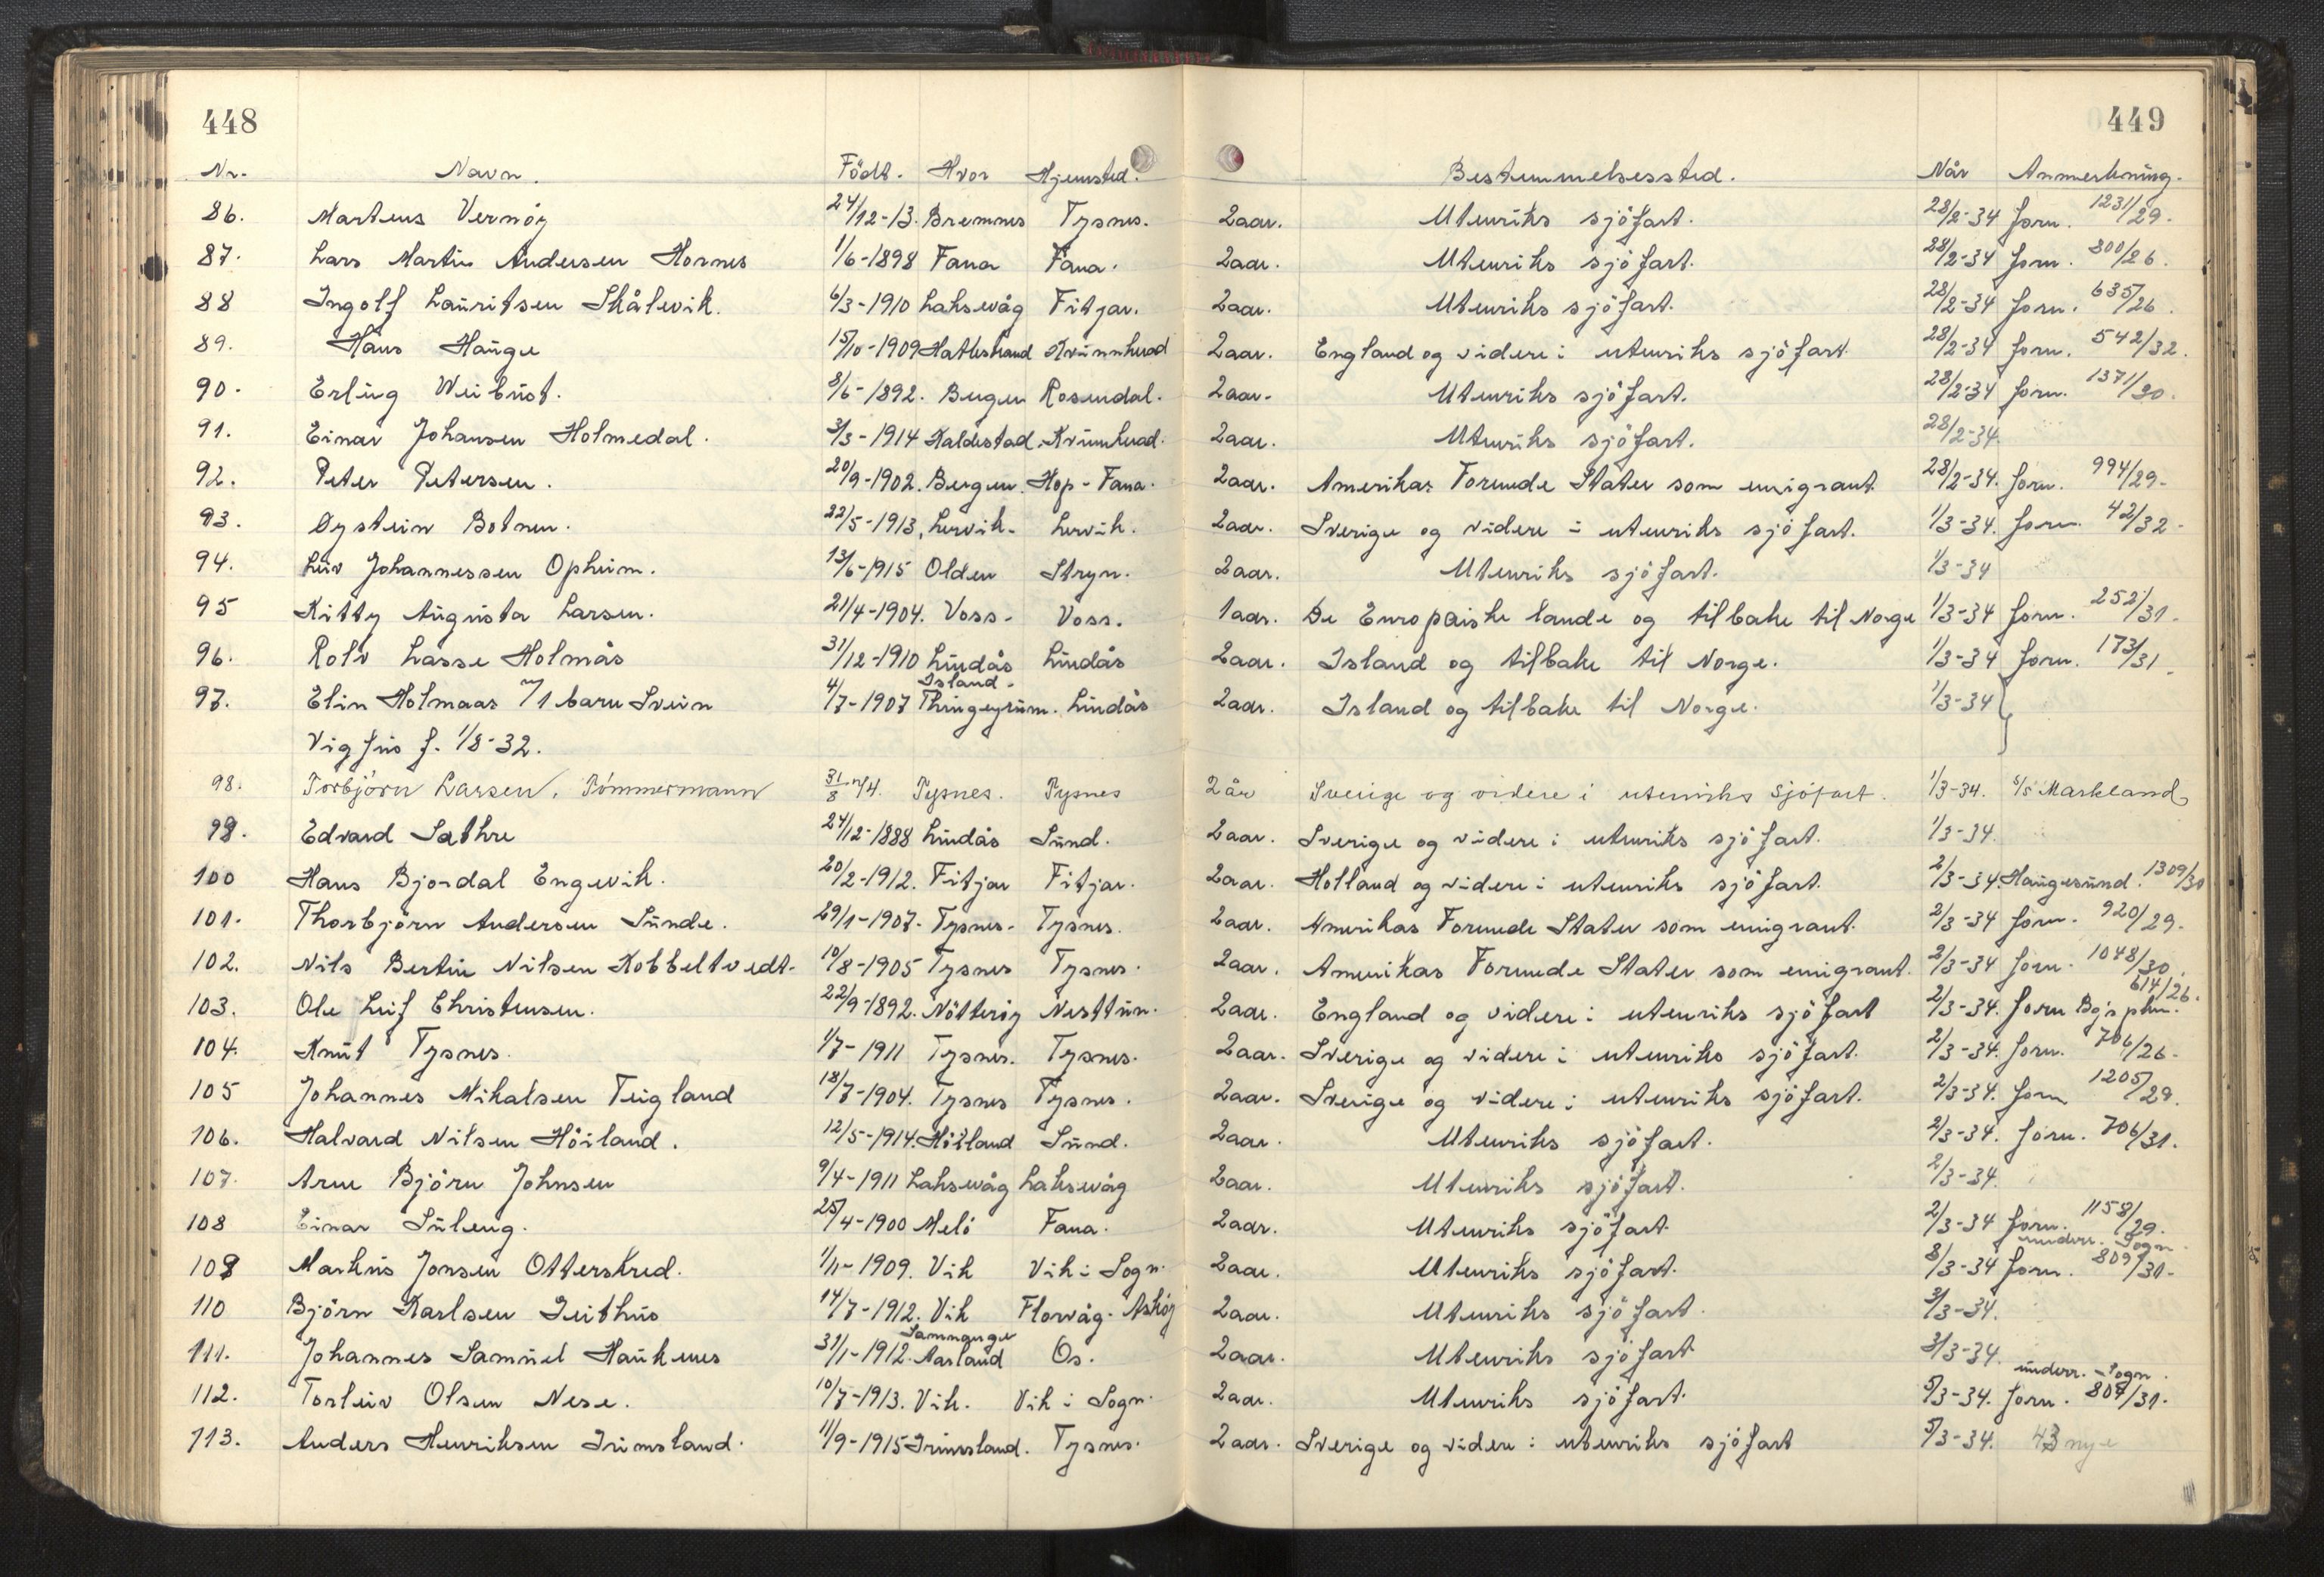 448
0449
Nr. Navn. Födt. Hvor Hjemsted. Bestemmelsessted. Når Anmerkning.
86. Martens Vernöy 24/12-13. Bremnes Tysnes. 2 aar. Utenriks sjöfart. 28/2-34 forn. 1231/29.
87. Lars Martin Andersen Hornes 1/6-1898 Fana Fana. 2 aar. Utenriks sjöfart. 28/2-34 forn. 800/26.
88 Ingolf Lauritsen Skålevik. 6/3-1910 Laksevåg Fitjar. 2 aar. Utenriks sjöfart. 28/2-34 forn. 635/26.
89. Hans Hauge 15/10-1909 Hatlestrand Kvinnherad 2 aar. England og videre i utenriks sjöfart. 28/2-34 forn. 542/32.
90. Erling Weibust. 8/6-1892. Bergen Rosendal. 2 aar. Utenriks sjöfart. 28/2-34 forn. 1371/30.
91. Einar Johansen Holmedal. 3/3-1914 Kaldestad. Kvinnherad. 2 aar. Utenriks sjöfart. 28/2-34.
92. Peter Petersen. 20/9-1902. Bergen. Hop-Fana. 2 aar. Amerikas Forenede Stater som emigrant. 28/2-34. forn. 994/29.
93. Øystein Botnen. 22/5-1913, Lervik. Lervik. 2 aar. Sverige og videre i utenriks sjöfart. 1/3-34. forn. 42/32.
94. Liv Johannessen Opheim. 13/6-1915 Olden Stryn. 2 aar. Utenriks sjöfart. 1/3-34
95 Kitty Augusta Larsen. 21/4-1904. Voss. Voss. 1 aar. De Europaiske lande og tilbake til Norge 1/3-34 forn. 252/31.
96. Rolv Lasse Holmås 31/12-1910 Lindås Lindås 2 aar. Island og tilbake til Norge. 1/3-34 forn. 173/31.
Island.
97. Elin Holmaas m/1 barn Svein 4/7-1907 Thingeyrum. Lindås 2 aar. Island og tilbake til Norge. 1/3-34 }
Vigfus f. 1/8-32.
98. Torbjörn Larsen, Tömmermann 31/8 Tysnes. Tysnes 2 år Sverige og videre i utenriks sjöfart. 1/3-34. s/s Markland
99. Edvard Sathre 24/12-1888 Lindås Sund. 2 aar. Sverige og videre i utenriks sjöfart. 1/3-34.
100 Hans Bjordal Engevik. 20/2-1912. Fitjar Fitjar. 2 aar. Holland og videre i utenriks sjöfart. 2/3-34. Haugesund. 1309/30
101. Thorbjörn Andersen Sunde. 29/1-1907. Tysnes. Tysnes. 2 aar. Amerikas Forenede Stater som emigrant. 2/3-34 forn. 920/29.
102. Nils Bertin Nilsen Kobbeltvedt. 10/8-1905 Tysnes Tysnes. 2 aar. Amerikas Forenede Stater som emigrant. 2/3-34 forn. 1048/30.
103. Ole Leif Christensen. 22/9-1892. Nötteröy Nesttun. 2 aar. England og videre i utenriks sjöfart 2/3-34. forn Bgs pkm. 614/26.
104. Knut Tysnes. 1/7-1911 Tysnes. Tysnes. 2 aar. Sverige og videre i utenriks sjöfart. 2/3-34. forn. 706/26.
105 Johannes Mikalsen Teigland 18/7-1904. Tysnes Tysnes. 2 aar. Sverige og videre i utenriks sjöfart. 2/3-34. forn 1205/29.
106. Halvard Nilsen Höiland. 12/5-1914. Höiland Sund. 2 aar. Utenriks sjöfart. 2/3-34. forn. 706/31.
107. Arne Björn Johnsen 9/4-1911 Laksevåg Laksevåg 2 aar. Utenriks sjöfart. 2/3-34.
108 Einar Suleng. 25/4-1900 Melö Fana. 2 aar. Utenriks sjöfart. 2/3-34 forn. 1158/29.
underr. Sogn.
109 Markus Jonsen Otterskred. 1/11-1909. Vik Vik i Sogn. 2 aar. Utenriks sjöfart. 8/3-34 forn. 809/31.
110 Björn Karlsen Seithus 14/7-1912. Vik Florvåg. Asköy 2 aar. Utenriks sjöfart. 3/3-34.
Samnanger
111. Johannes Samuel Haukenes 31/1-1912. Aarland Os. 2 aar. Utenriks sjöfart 3/3-34.
underr. Sogn.
112. Torleiv Olsen Nese. 10/7-1913. Vik. Vik i Sogn. 2 aar. Utenriks sjöfart. 5/3-34. forn. 807/31.
113. Anders Henriksen Grimsland. 11/9-1915 Grimsland. Tysnes. 2 aar. Sverige og videre i utenriks sjöfart 5/3-34. 43 nye